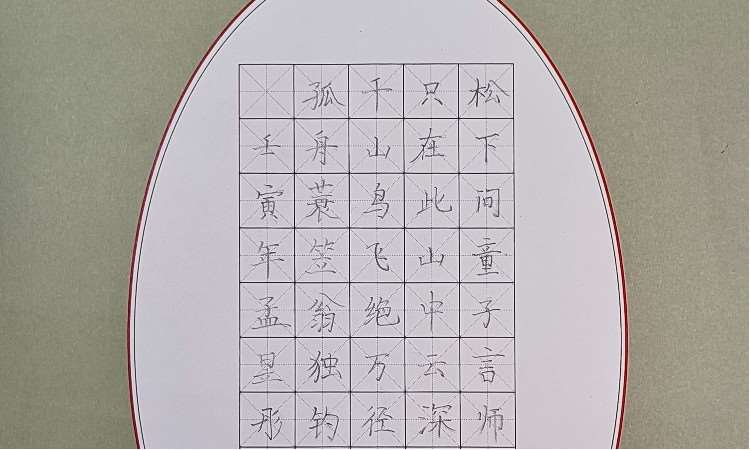 松下问童子言师
只在此山中云深
千山鸟飞绝万径
孤舟蓑笠翁独钓
壬寅年孟星彤